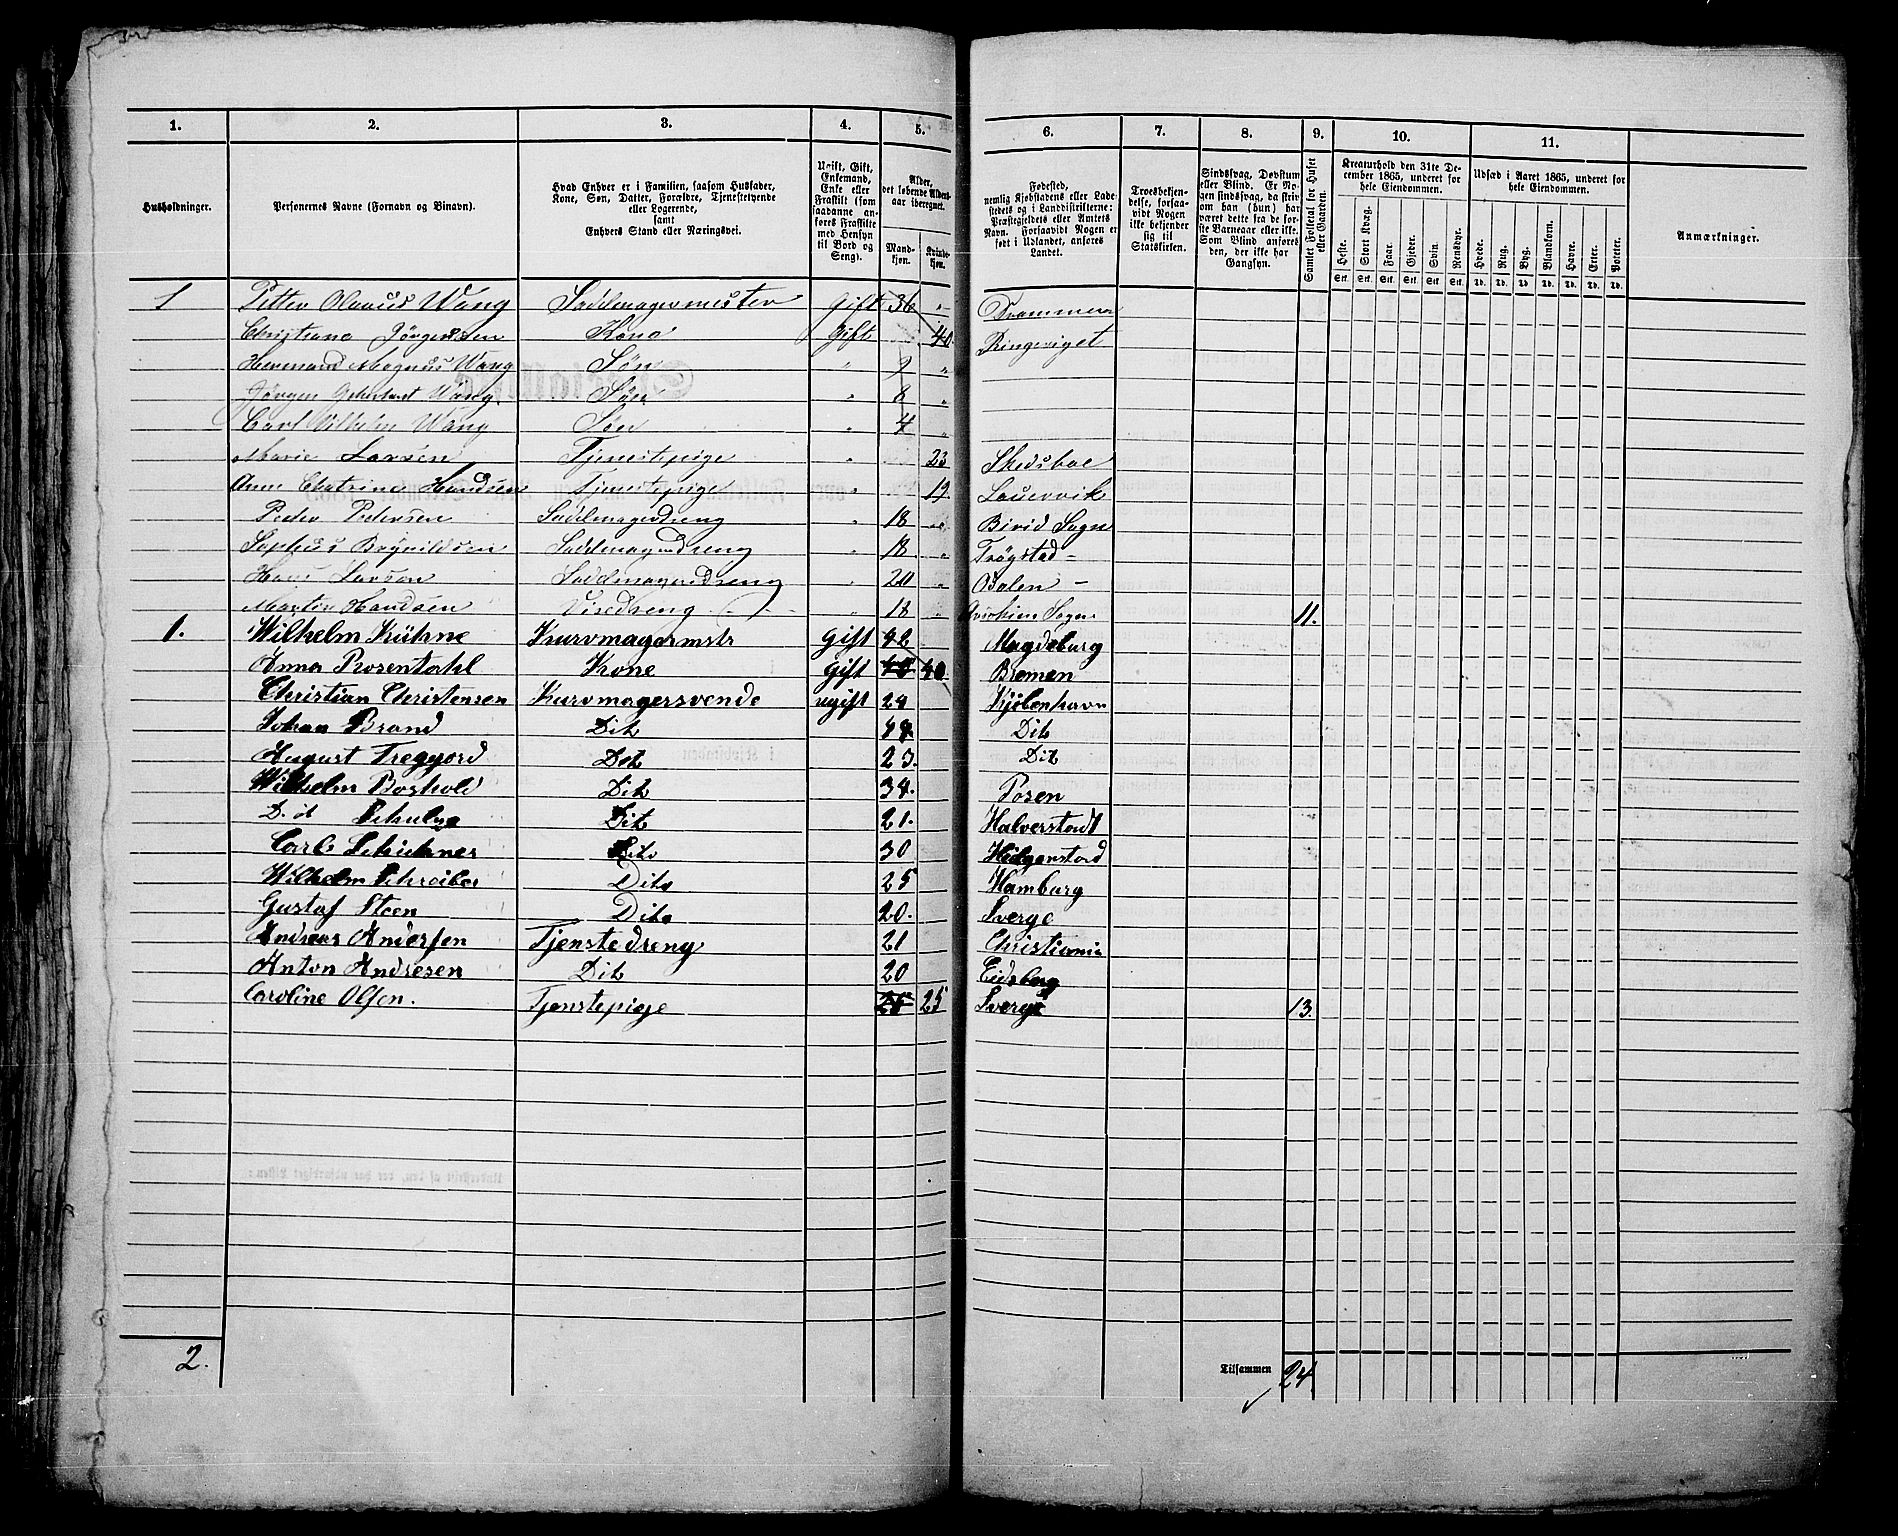 1. 2. 3. 4. 5. 6. 7. 8. 9. 10. 11.
Husholdninger.
Personernes Navne (Fornavn og Binavn).
Hvad Enhver er i Familien, saasom Husfader,
Kone, Søn, Datter, Forældre, Tjenestetyende
eller Logerende,
samt
Enhvers Stand eller Næringsvei.
Ugift, Gift,
Enkemand,
Enke eller
Fraskilt (som
saadanne an-
føres Fraskilte
med Hensyn
til Bord og
Seng).
Alder,
det løbende Alders-
aar iberegnet.
Mand-
kjøn.
Kvinde-
kjøn.
Fødested,
nemlig Kjøbstadens eller Lade-
stedets og i Landdistrikterne:
Præstegjeldets eller Amtets
Navn. Forsaavidt Nogen er
født i Udlandet, anføres
Landet.
Troesbekjen-
delse, forsaa-
vidt Nogen
ikke bekjender
sig til
Statskirken.
Sindssvag, Døvstum
eller Blind. Er No-
gen sindssvag, da skriv
om han (hun) har
været dette fra de før-
ste Barneaar eller ikke.
Som Blind anføres
den, der ikke har
Gangsyn.
Samlet Folketal for Huset
eller Gaarden.
Kreaturhold den 31te De-
cember 1865, underet for
hele Eiendommen.
Heste. Stort Kvæg. Faar. Gjeder. Svin. Rensdyr.
Stk. Stk. Stk. Stk. Stk. Stk.
Udsæd i Aaret 1865, underet for
hele Eiendommen.
Hvede. Rug. Byg. Blandkorn. Havre. Erter. Poteter.
Td. Td. Td. Td. Td. Td. Td.
Anmærkninger.
1 Petter Olavus Wang Sadelmagermester Gift 36 " Drammen
Christiane Jörgensen Kone Gift 40 Ringeriget
Hermand Magnus Wang Søn " 9 "
Jörgen Wang Søn " 8 "
Carl Vilhelm Wang Søn " 4 "
Marie Larsen Tjenestepige " 23 Skedsmoe
Anne Chatrine Handsen Tjenestepige " 19 Laurvik
Peder Pedersen Sadelmagerdreng " 18 " Birid Sogn
Sophus Sadelmagerdreng " 18 " Trögstad -
Hans Larsen Sadelmagerdreng " 20 "
Martin Handsen Visedreng " 18 " Sogn 11.
1. Wilhelm Kühne Kurvmagermstr Gift 42 Magdeburg
Anna Rosentahl Kone Gift 40 40 Bremen
Christian Christensen Kurvmagersvende ugift 24 Kjöbenhavn
Johan Brand Dit 48 Dit
August Treggord Dit 23. Dit
Wilhelm Boshold Dit 34. Posen
D. it Schulze Dit 21. Halverstadt
Carl Dito 30 Heilgenstad
Wilhelm Schreiber Dito 25 Hamburg
Gustaf Steen Dito 20. Sverge
Andreas Andersen Tjenstedreng 21 Christiania
Anton Andresen Dit 20 Eidsberg
Caroline Olsen. Tjenstepige 25 25 Sverge 13.
2. Tilsammen 24.